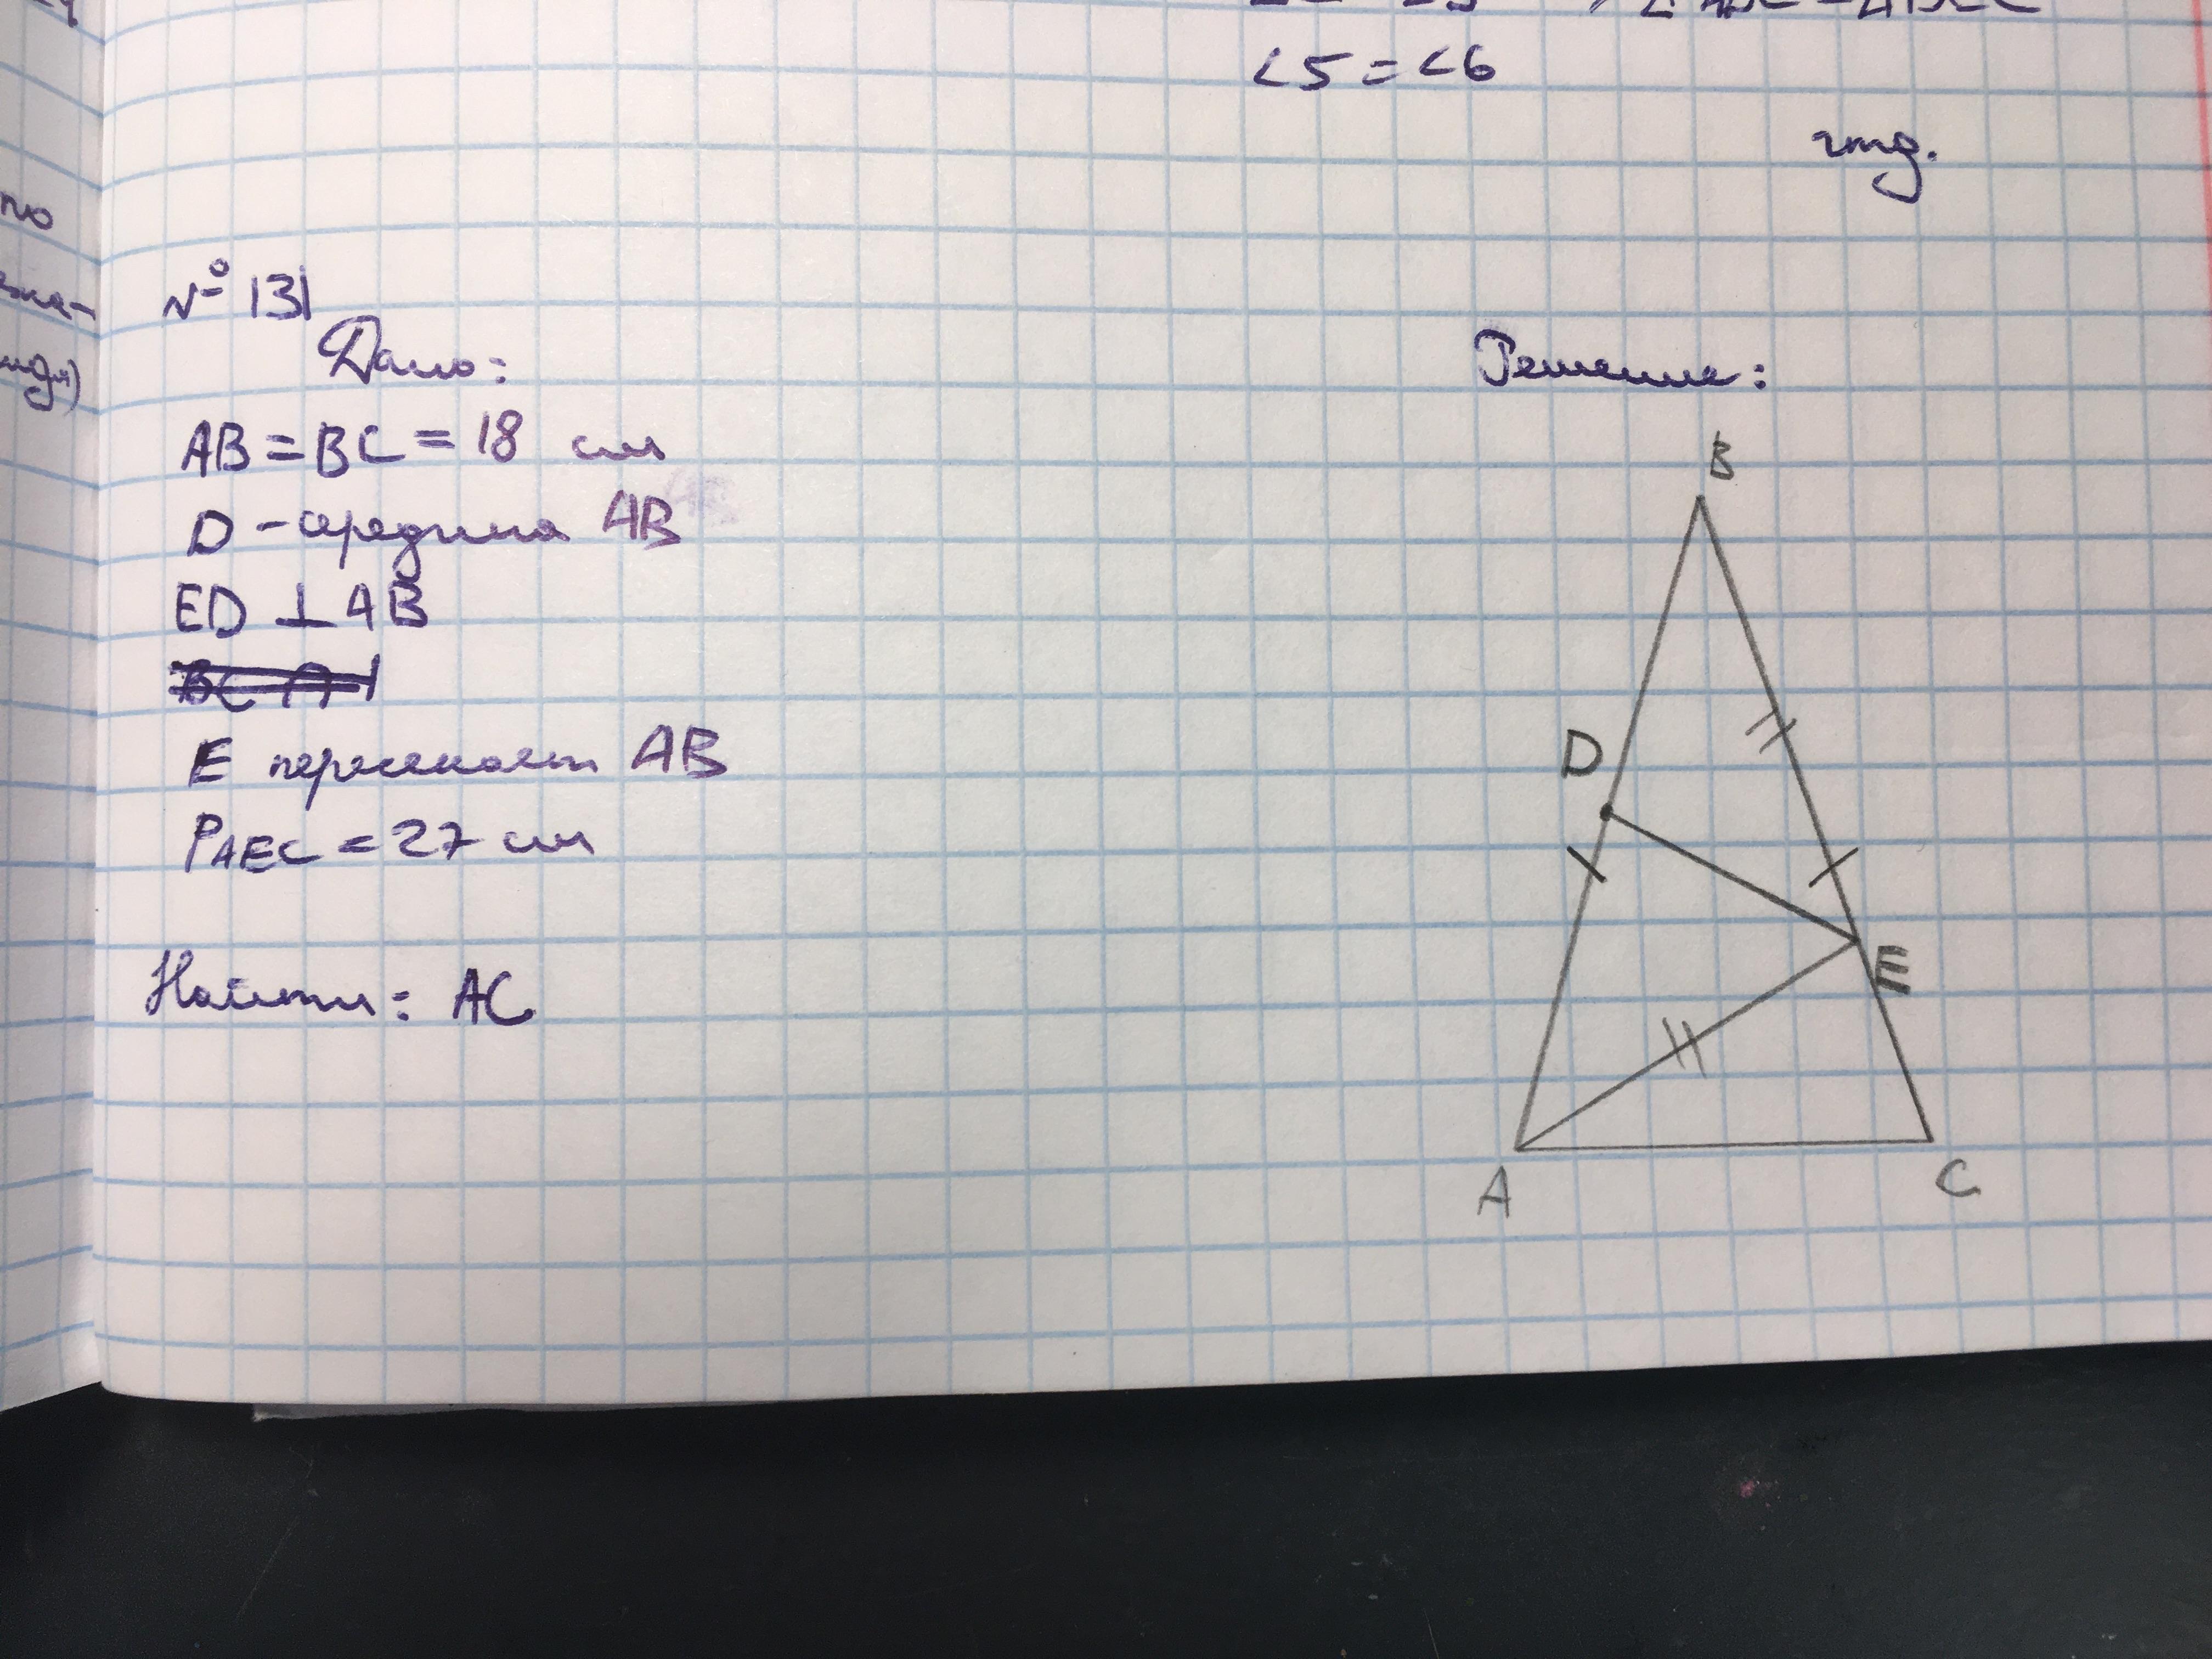 ∠5 = ∠6
чтд.
№ 131
Дано:
AB = BC = 18 см
D - середина AB
ED ⊥ AB
E пересекает AB
P AEC = 27 см
Найти: AC
Решение:
B
D
E
A
C